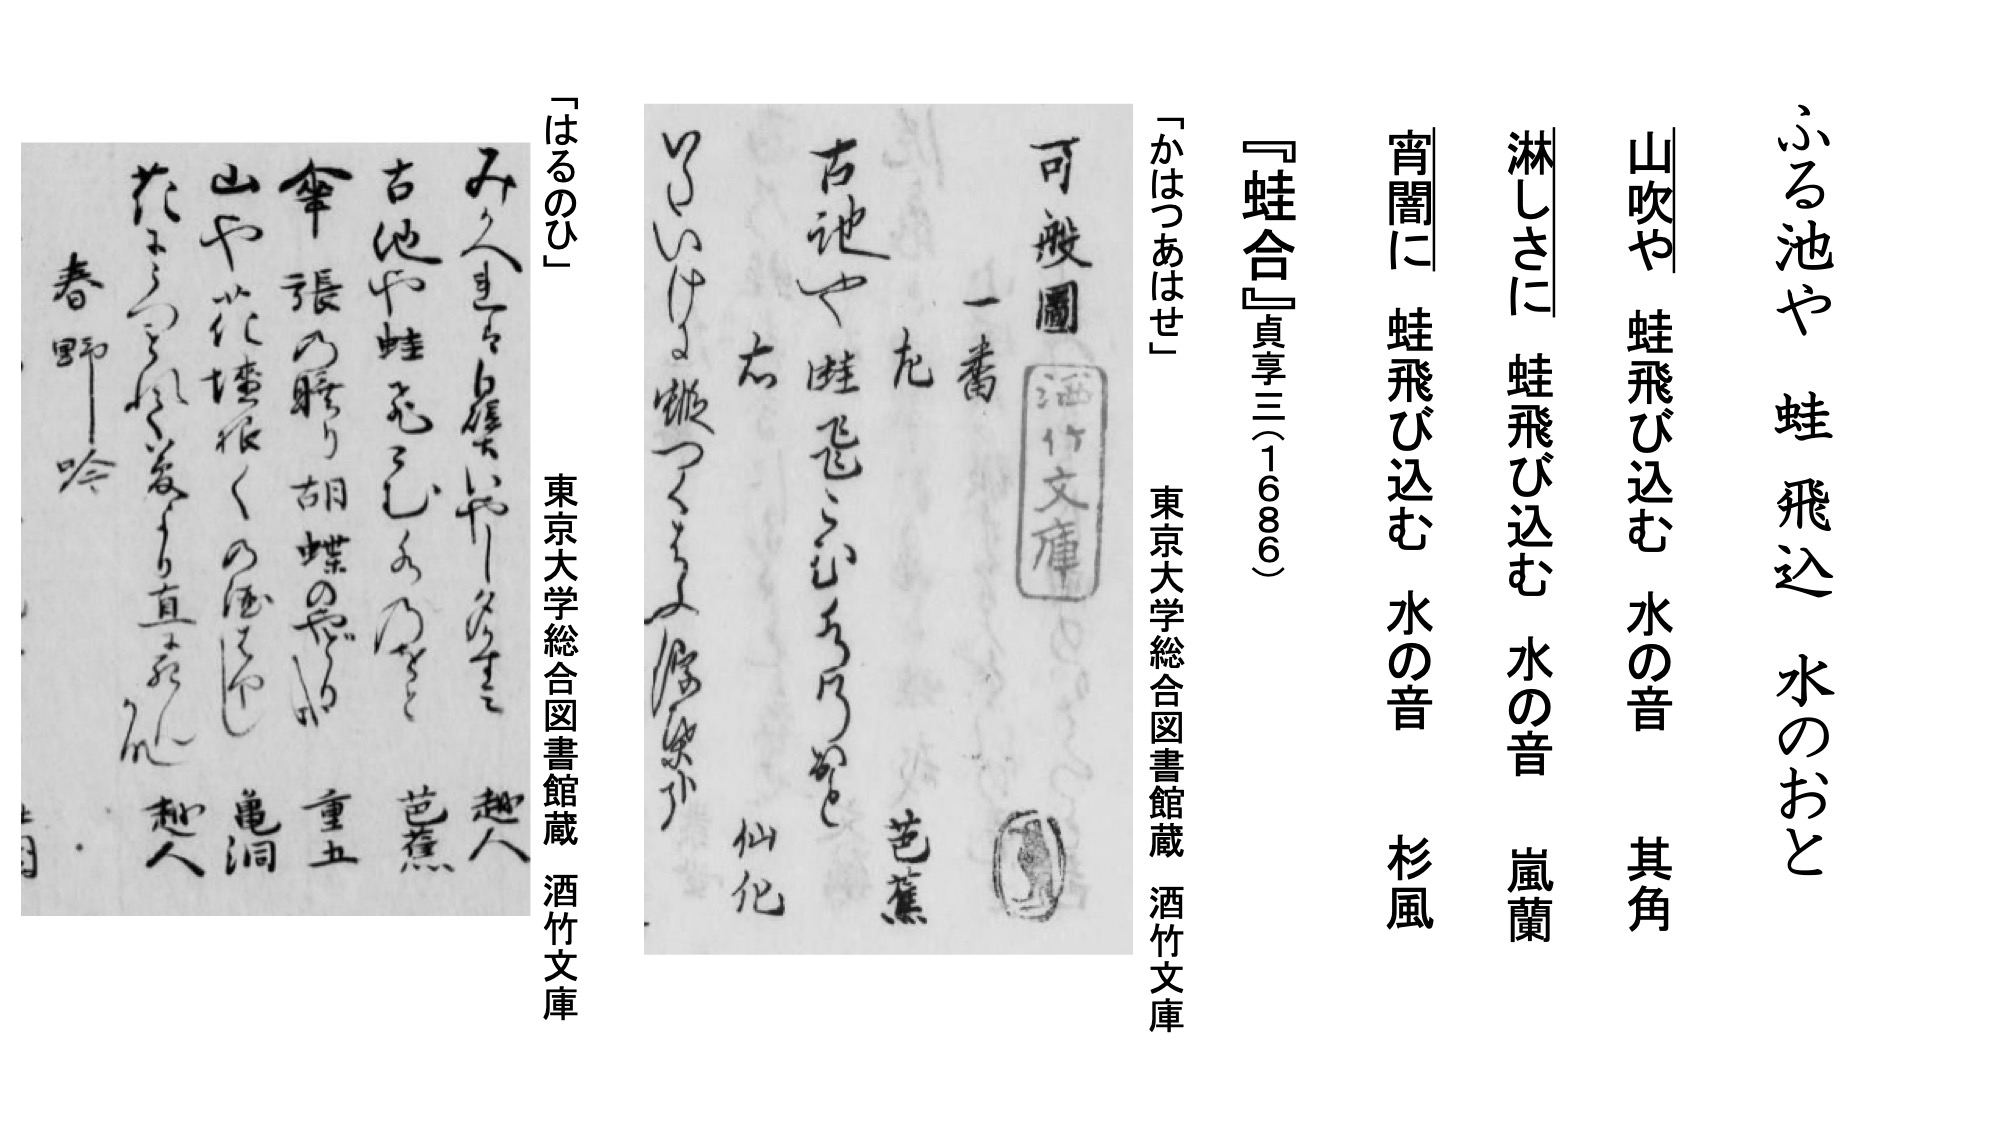 ふる池や 蛙 飛込 水のおと
山吹や 蛙飛び込む 水の音 其角
淋しさに 蛙飛び込む 水の音 嵐蘭
宵闇に 蛙飛び込む 水の音 杉風
『蛙合』貞享三(1686)
「かはつあはせ」 東京大学総合図書館蔵 酒竹文庫
可般圖
酒竹文庫
一番
左 芭蕉
古池や蛙飛こむ水のおと
右 仙化
いたいけに蝦つくはふ浮葉哉
「はるのひ」 東京大学総合図書館蔵 酒竹文庫
みかへれは白壁いやし夕かすみ 越人
古池や蛙飛こむ水のをと 芭蕉
傘張の睡り胡蝶のやとり哉 重五
山や花墻根〱の酒はやし 亀洞
花にうつふれて夢より直に死んかな 越人
春野吟